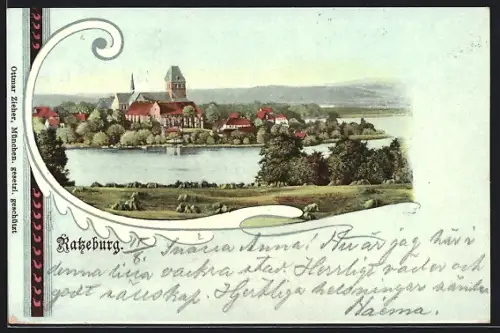 Ottmar Zieher, München. gesetzl. geschützt
Ratzeburg.
Snälla Anna! Nu är jag här i
denna lilla vackra stad. Herrligt väder och
godt sällskap. Hjertliga helsningar sänder